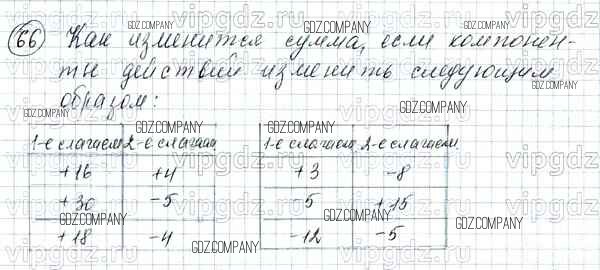 66 Как изменится сумма, если компонен-
ты действий изменить следующим
образом:
1-е слагаем 2-е слагаем 1-е слагаем 2-е слагаем
+16 +4 +3 -8
+30 -5 5 +15
+18 -4 -12 -5
GDZ.COMPANY
vipgdz.ru